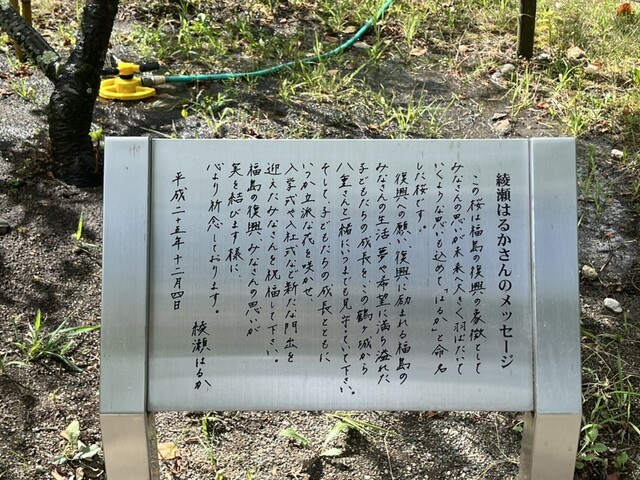 綾瀬はるかさんのメッセージ
この桜は福島の復興の象徴として
みなさんの思いが未来へ大きく羽ばたいて
いくような思いも込めて、「はるか」と命名
した桜です。
復興への願い、復興に励まれる福島の
みなさんの生活、夢や希望に満ち溢れた
子どもたちの成長を、この鶴ヶ城から
八重さんと一緒にいつまでも見守っていて下さい。
そして、子どもたちの成長とともに、
いつか立派な花を咲かせ、
入学式や入社式など新たな門出を
迎えたみなさんを祝福して下さい。
福島の復興、みなさんの思いが
実を結びます様に、
心より祈念しております。
平成二十五年十二月四日
綾瀬はるか